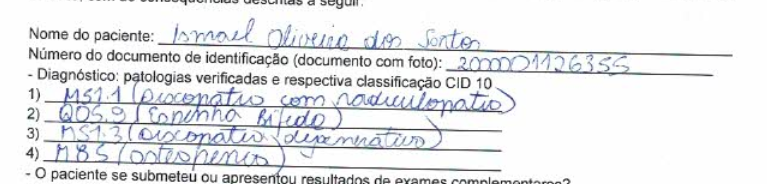 Nome do paciente: Ismael Oliveira dos Santos
Número do documento de identificação (documento com foto): 2000001126355
- Diagnóstico: patologias verificadas e respectiva classificação CID 10
1) M51.1 (Discopatia com radiculopatia)
2) Q05.9 (Espinha Bífida)
3) M51.3 (Discopatia degenerativa)
4) M85 (osteopenia)
- O paciente se submeteu ou apresentou resultados de exames complementares?